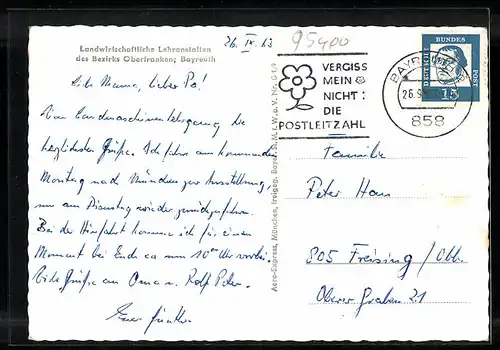 26. IX. 63
95400
Landwirtschaftliche Lehranstalten
des Bezirks Oberfranken; Bayreuth
Liebe Mama, lieber Pa!
Vom Landmaschinenlehrgang die
herzlichsten Grüße. Ich fahre am kommenden
Montag nach München zur Ausstellung,
um am Dienstag wieder zurückzufahren.
Bei der Hinfahrt komme ich für einen
Moment bei Euch ca um 10°° Uhr vorbei.
Liebe Grüße an Oma u. Rolf Peter.
Euer Günther
Aero-Express, München, freigeg. Bayer. St. M. f. W. u. V. Nr. G 1/9
VERGISS
MEIN
NICHT:
DIE
POSTLEITZAHL
BAYREUTH
26.9.
858
DEUTSCHE
BUNDES
POST
15
Familie
Peter Han
805 Freising/Obb.
Oberer Graben 21